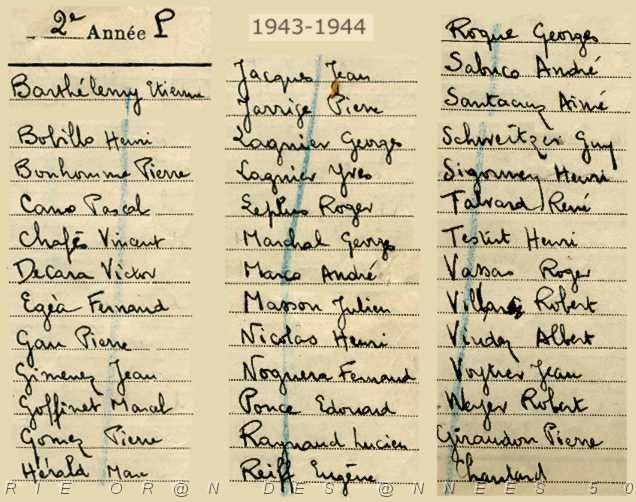 2e Année P
1943-1944
Barthélemy Etienne
Bobillo Henri
Bonhomme Pierre
Cano Pascal
Chafès Vincent
DeCara Victor
Egèa Fernand
Gau Pierre
Gimenez Jean
Goffinet Marcel
Gomez Pierre
Hérald Marc
Jacques Jean
Jarrige Pierre
Lagnier Georges
Lagnier Yves
Leplus Roger
Marchal Georges
Marco André
Masson Julien
Nicolas Henri
Noguera Fernand
Ponce Edouard
Raynaud Lucien
Reiff Eugène
Roque Georges
Sabuco André
Santacruz Aimé
Schweitzer Guy
Sigonney Henri
Talvard René
Testut Henri
Vassas Roger
Villar Robert
Viudez Albert
Voytier Jean
Weyer Robert
Giraudon Pierre
Chantard
RIE OR@N DES @NNEES 50